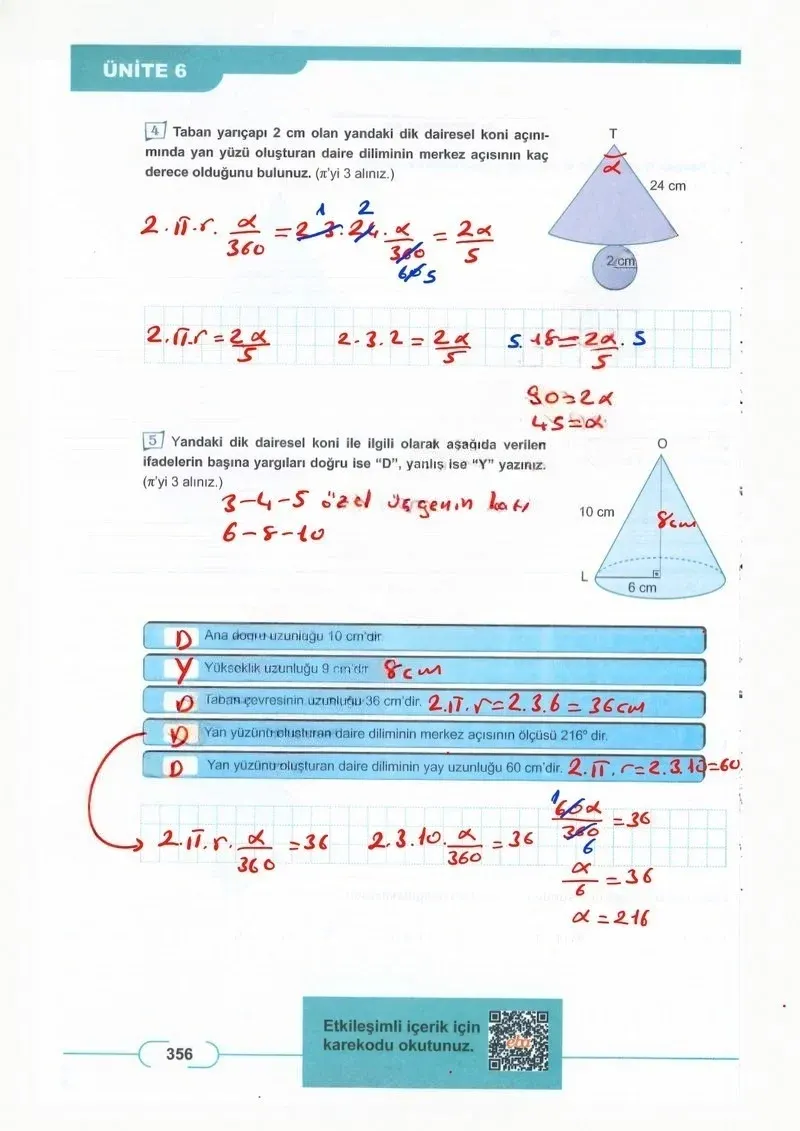 ÜNİTE 6
4 Taban yarıçapı 2 cm olan yandaki dik dairesel koni açını-
mında yan yüzü oluşturan daire diliminin merkez açısının kaç
derece olduğunu bulunuz. (π'yi 3 alınız.)
T
α
24 cm
2 cm
2.π.r. α/360 = 2.3.24. α/360 = 2α/5
1 2
60 5
2.π.r = 2α/5 2.3.2 = 2α/5 5. 18 = 2α/5 . 5
90=2α
45=α
5 Yandaki dik dairesel koni ile ilgili olarak aşağıda verilen
ifadelerin başına yargıları doğru ise “D”, yanlış ise “Y” yazınız.
(π'yi 3 alınız.)
3-4-5 özel üçgenin katı
6-8-10
O
10 cm
8cm
L
6 cm
D Ana doğru uzunluğu 10 cm'dir
Y Yükseklik uzunluğu 9 cm'dir 8cm
D Taban çevresinin uzunluğu 36 cm'dir. 2.π.r=2.3.6 = 36cm
D Yan yüzünü oluşturan daire diliminin merkez açısının ölçüsü 216° dir.
D Yan yüzünü oluşturan daire diliminin yay uzunluğu 60 cm'dir. 2.π.r=2.3.10=60.
2.π.r. α/360 = 36 2.3.10. α/360 = 36 60α/360 = 36
1 6
α/6 = 36
α = 216
Etkileşimli içerik için
karekodu okutunuz.
356